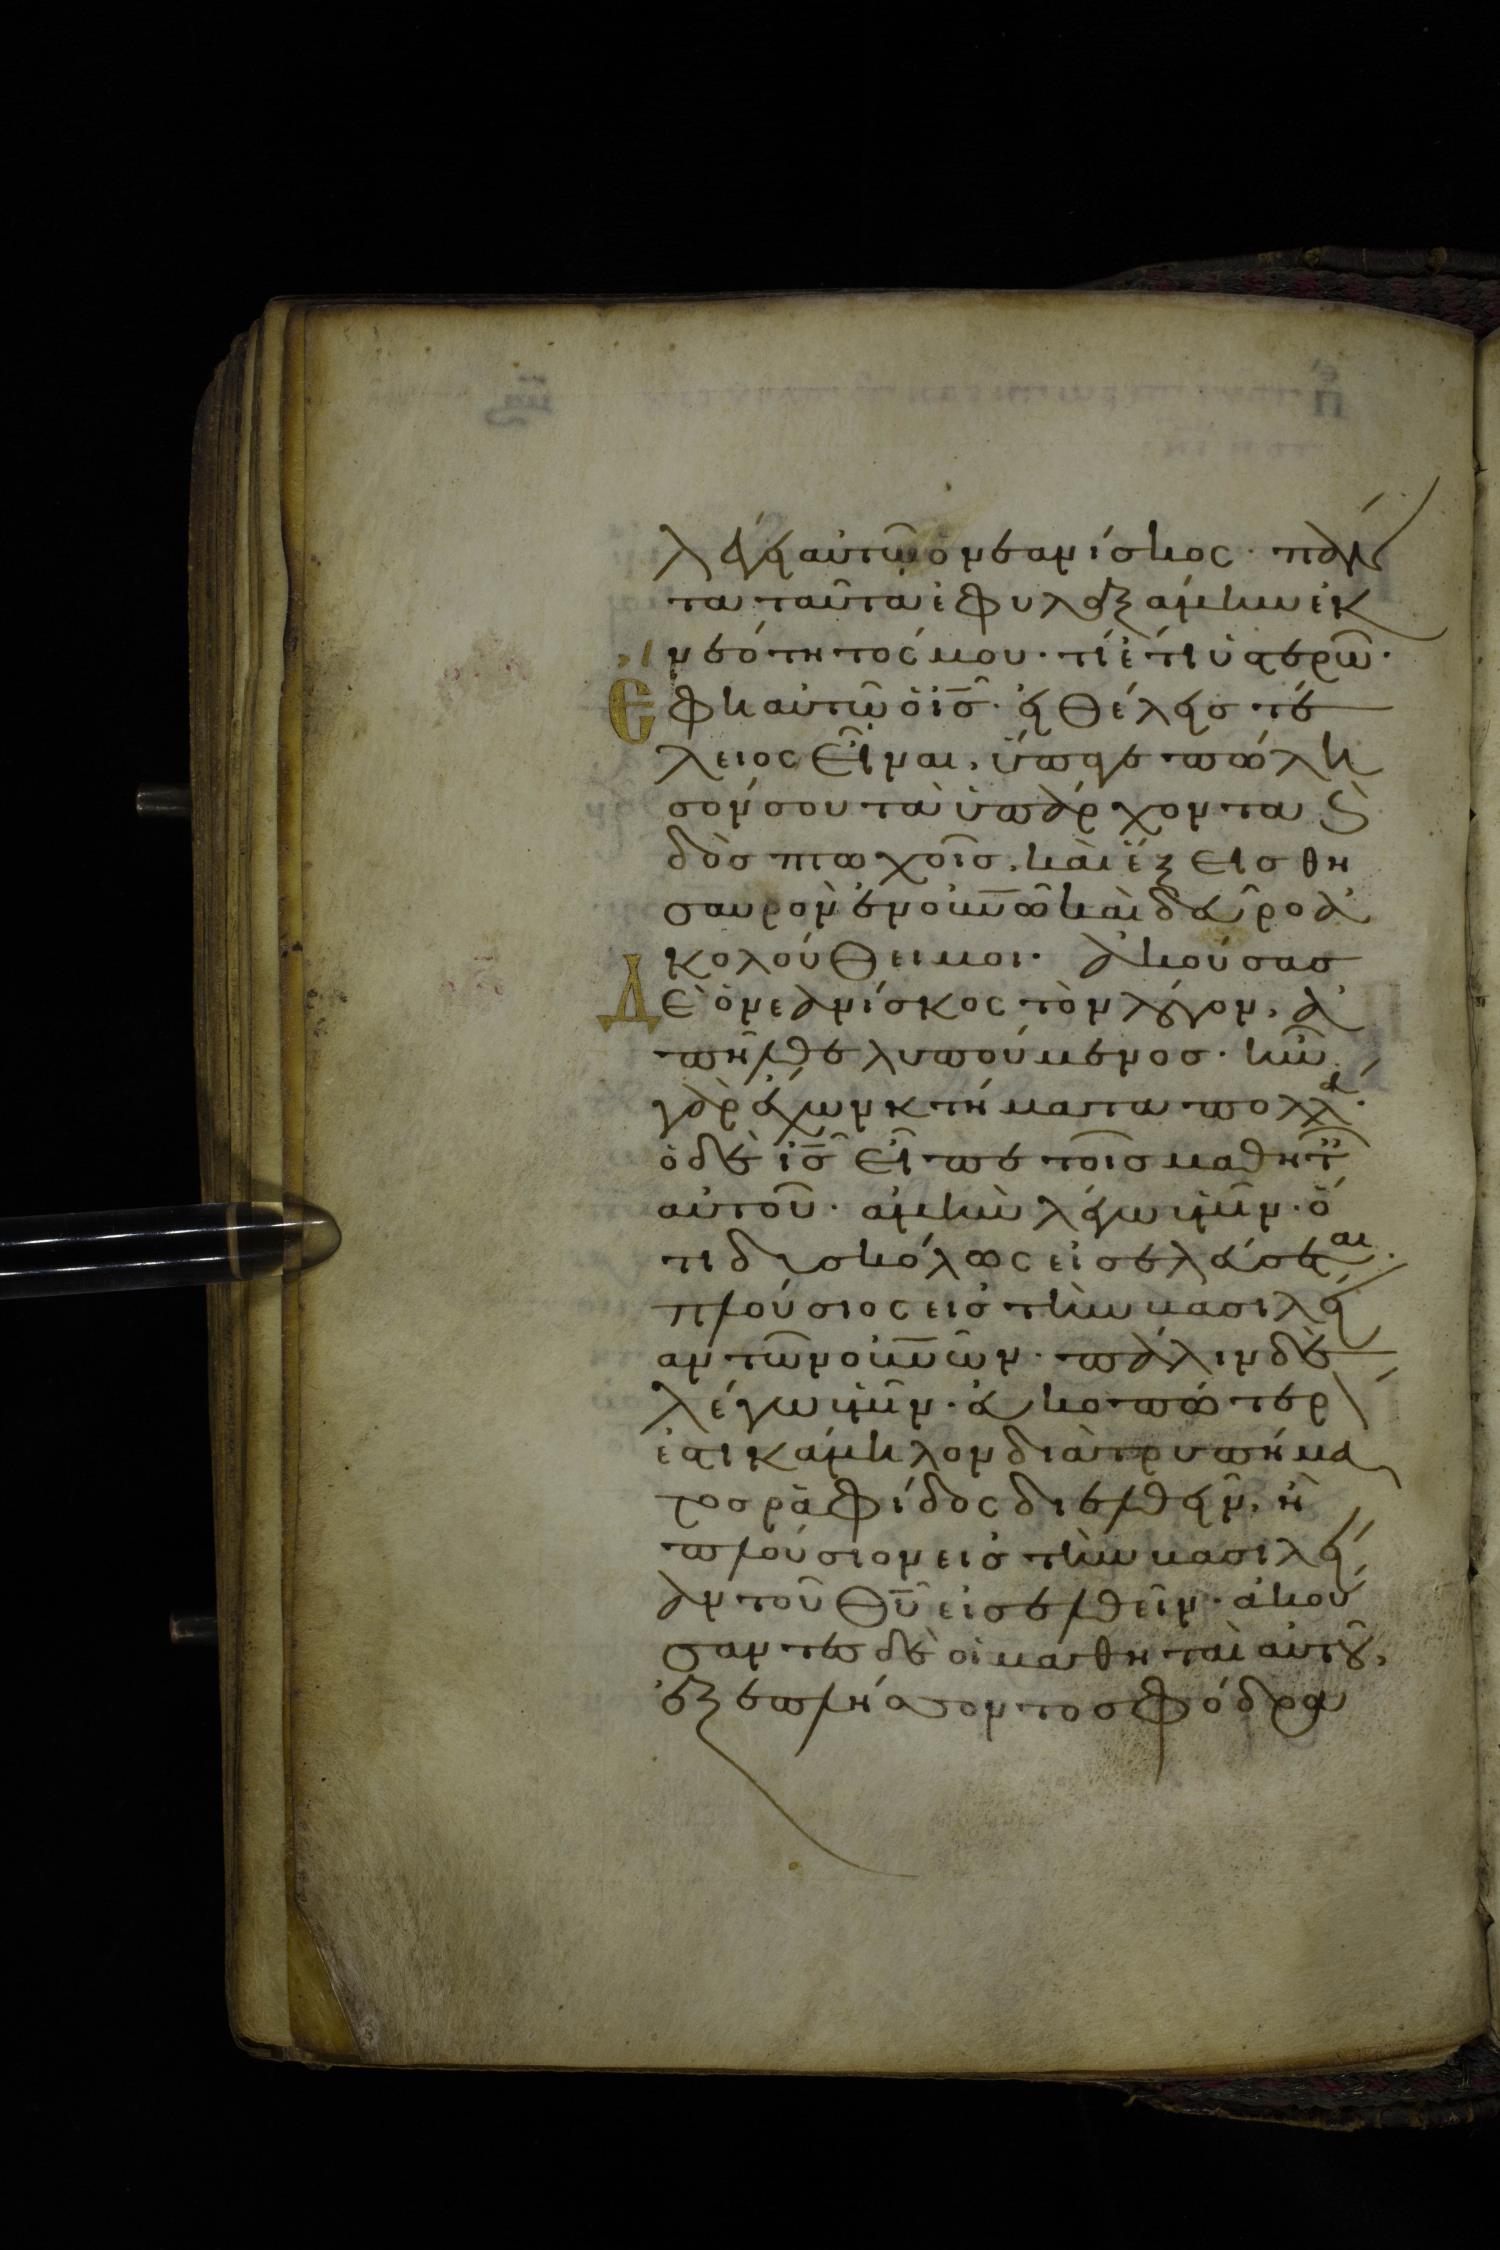 λέγει αὐτῶ ὁ νεανίσκος· πάν
τα ταῦτα ἐφυλαξάμην ἐκ
νεότητός μου· τί ἔτι ὑστερῶ·
Εφη αὐτῶ ὁ ἰς· εἰ θέλεις τέ
λειος εἶναι, ὕπαγε πώλη
σόν σου τὰ ὑπάρχοντα ϗ
δὸς πτωχοῖς, καὶ ἕξεις θη
σαυρὸν ἐν οὐνῶ καὶ δεῦρο ἀ
κολούθει μοι· ἀκούσας
Δὲ ὁ νεανίσκος τὸν λόγον, ἀ
πῆλθε λυπούμενος· ἦν
γὰρ ἔχων κτήματα πολλά·
ὁ δὲ ἰς εἶπε τοῖς μαθητ
αὐτοῦ· ἀμὴν λέγω ὑμῖν· ὅ
τι δυσκόλως εἰσελεύσεται
πλούσιος εἰς τὴν βασιλεί
αν τῶν οὐνῶν· πάλιν δὲ
λέγω ὑμῖν· εὐκοπώτερ
ἐστι κάμηλον διὰ τρυπήμα
τος ραφίδος διελθεῖν, ἢ
πλούσιον εἰς τὴν βασιλεί
αν τοῦ θυ εἰσελθεῖν· ἀκού
σαντες δὲ οἱ μαθηταὶ αὐτοῦ,
ἐξεπλήσσοντο σφόδρα